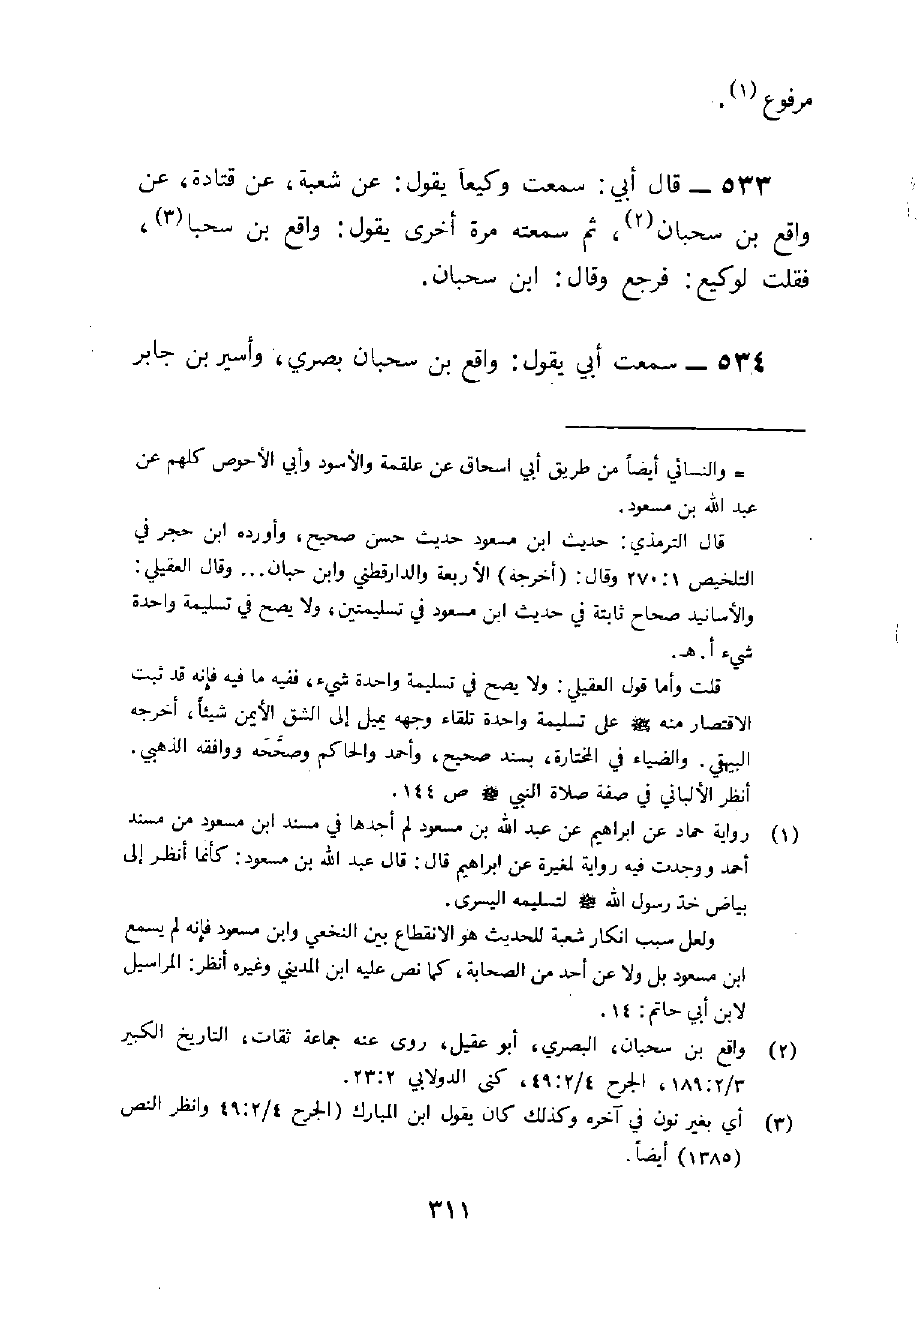 مرفوع (١) .
٥٣٣ ـ قال أبي : سمعت وكيعاً يقول : عن شعبة ، عن قتادة ، عن
واقع بن سحبان (٢) ، ثم سمعته مرة أخرى يقول : واقع بن سحبا (٣) ،
فقلت لوكيع : فرجع وقال : ابن سحبان .
٥٣٤ ـ سمعت أبي يقول : واقع بن سحبان بصري ، وأسير بن جابر
= والنسائي أيضاً من طريق أبي اسحاق عن علقمة والأسود وأبي الأحوص كلهم عن
عبد الله بن مسعود .
قال الترمذي : حديث ابن مسعود حديث حسن صحيح ، وأورده ابن حجر في
التلخيص ٢٧٠:١ وقال : (أخرجه) الأربعة والدارقطني وابن حبان ... وقال العقيلي :
والأسانيد صحاح ثابتة في حديث ابن مسعود في تسليمتين ، ولا يصح في تسليمة واحدة
شيء أ . هـ .
قلت وأما قول العقيلي : ولا يصح في تسليمة واحدة شيء ، ففيه ما فيه فإنه قد ثبت
الاقتصار منه ﷺ على تسليمة واحدة تلقاء وجهه يميل إلى الشق الأيمن شيئاً ، أخرجه
البيهقي . والضياء في المختارة ، بسند صحيح ، وأحمد والحاكم وصحَّحَه ووافقه الذهبي .
أنظر الألباني في صفة صلاة النبي ﷺ ص ١٤٤ .
(١) رواية حماد عن ابراهيم عن عبد الله بن مسعود لم أجدها في مسند ابن مسعود من مسند
أحمد ووجدت فيه رواية لمغيرة عن ابراهيم قال : قال عبد الله بن مسعود : كأنما أنظر إلى
بياض خد رسول الله ﷺ لتسليمه اليسرى .
ولعل سبب انكار شعبة للحديث هو الانقطاع بين النخعي وابن مسعود فإنه لم يسمع
ابن مسعود بل ولا عن أحد من الصحابة ، كما نص عليه ابن المديني وغيره أنظر : المراسيل
لابن أبي حاتم : ١٤ .
(٢) واقع بن سحبان ، البصري ، أبو عقيل ، روى عنه جماعة ثقات ، التاريخ الكبير
١٨٩:٢/٣ ، الجرح ٤٩:٢/٤ ، كنى الدولابي ٢٣:٢ .
(٣) أي بغير نون في آخره وكذلك كان يقول ابن المبارك (الجرح ٤٩:٢/٤ وانظر النص
(١٣٨٥) أيضاً .
٣١١